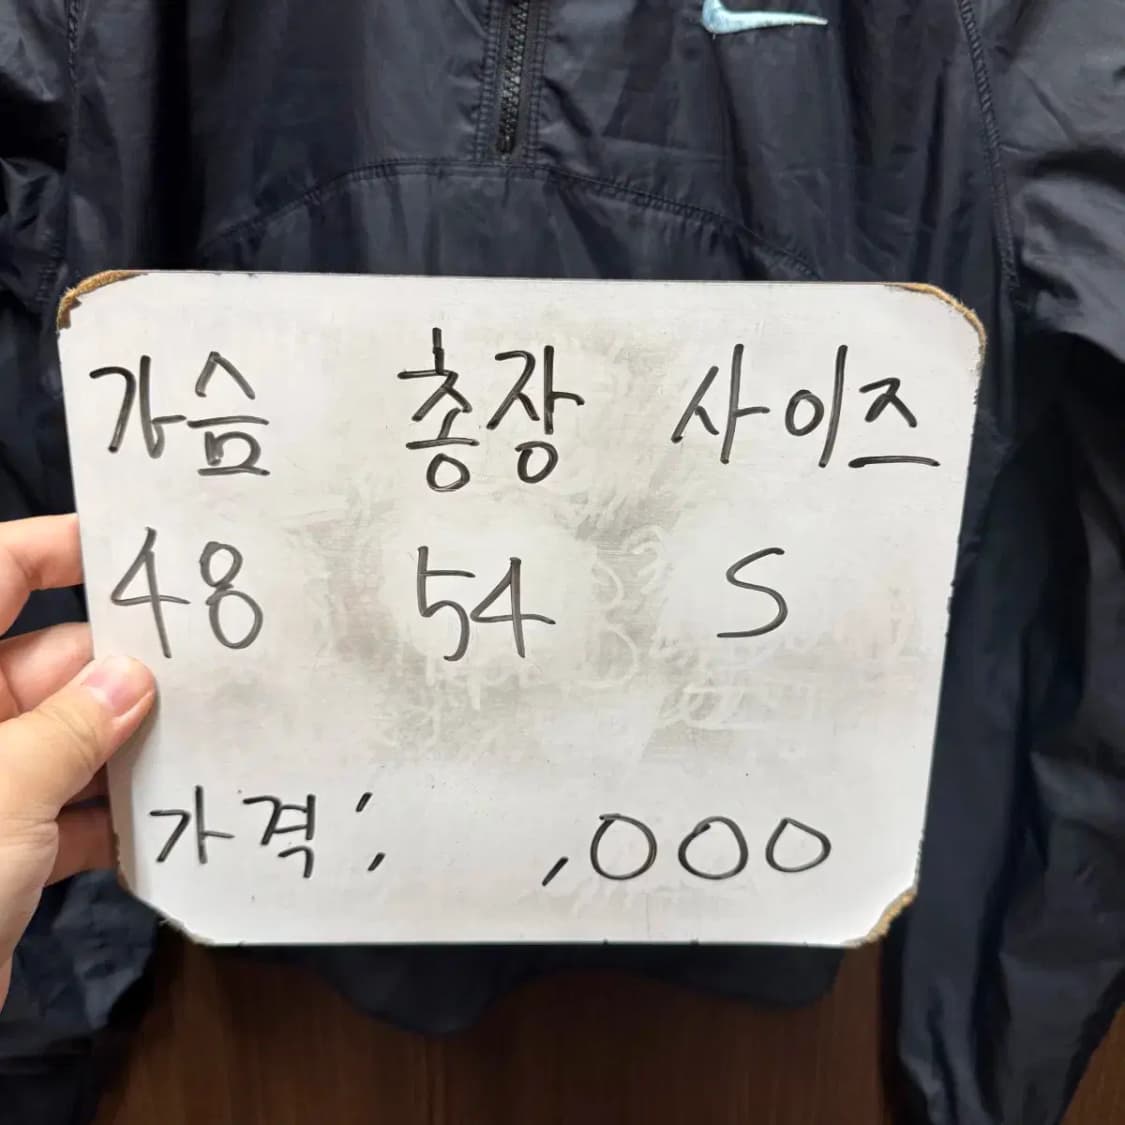 가슴 총장 사이즈
48 54 S
가격: ,000